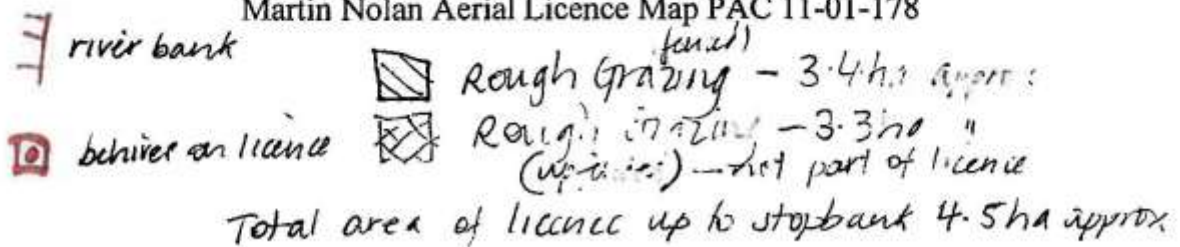 Martin Nolan Aerial Licence Map PAC 11-01-178
river bank
(fenced)
Rough Grazing - 3.4ha approx
behives on licence
Rough Grazing - 3.3ha "
not part of licence
Total area of licence up to stopbank 4.5ha approx